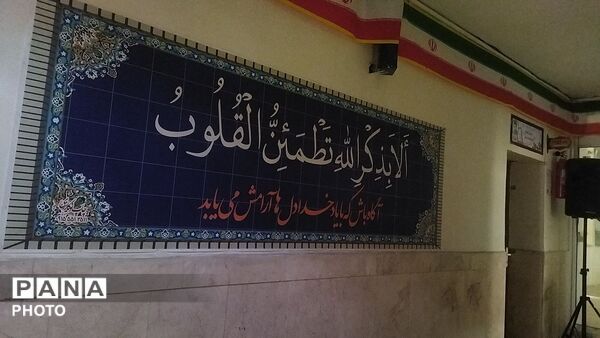 أَلَا بِذِكْرِ اللهِ تَطْمَئِنُّ الْقُلُوبُ
آگاه باش که با یاد خدا دل ها آرامش می یابد
PANA
PHOTO